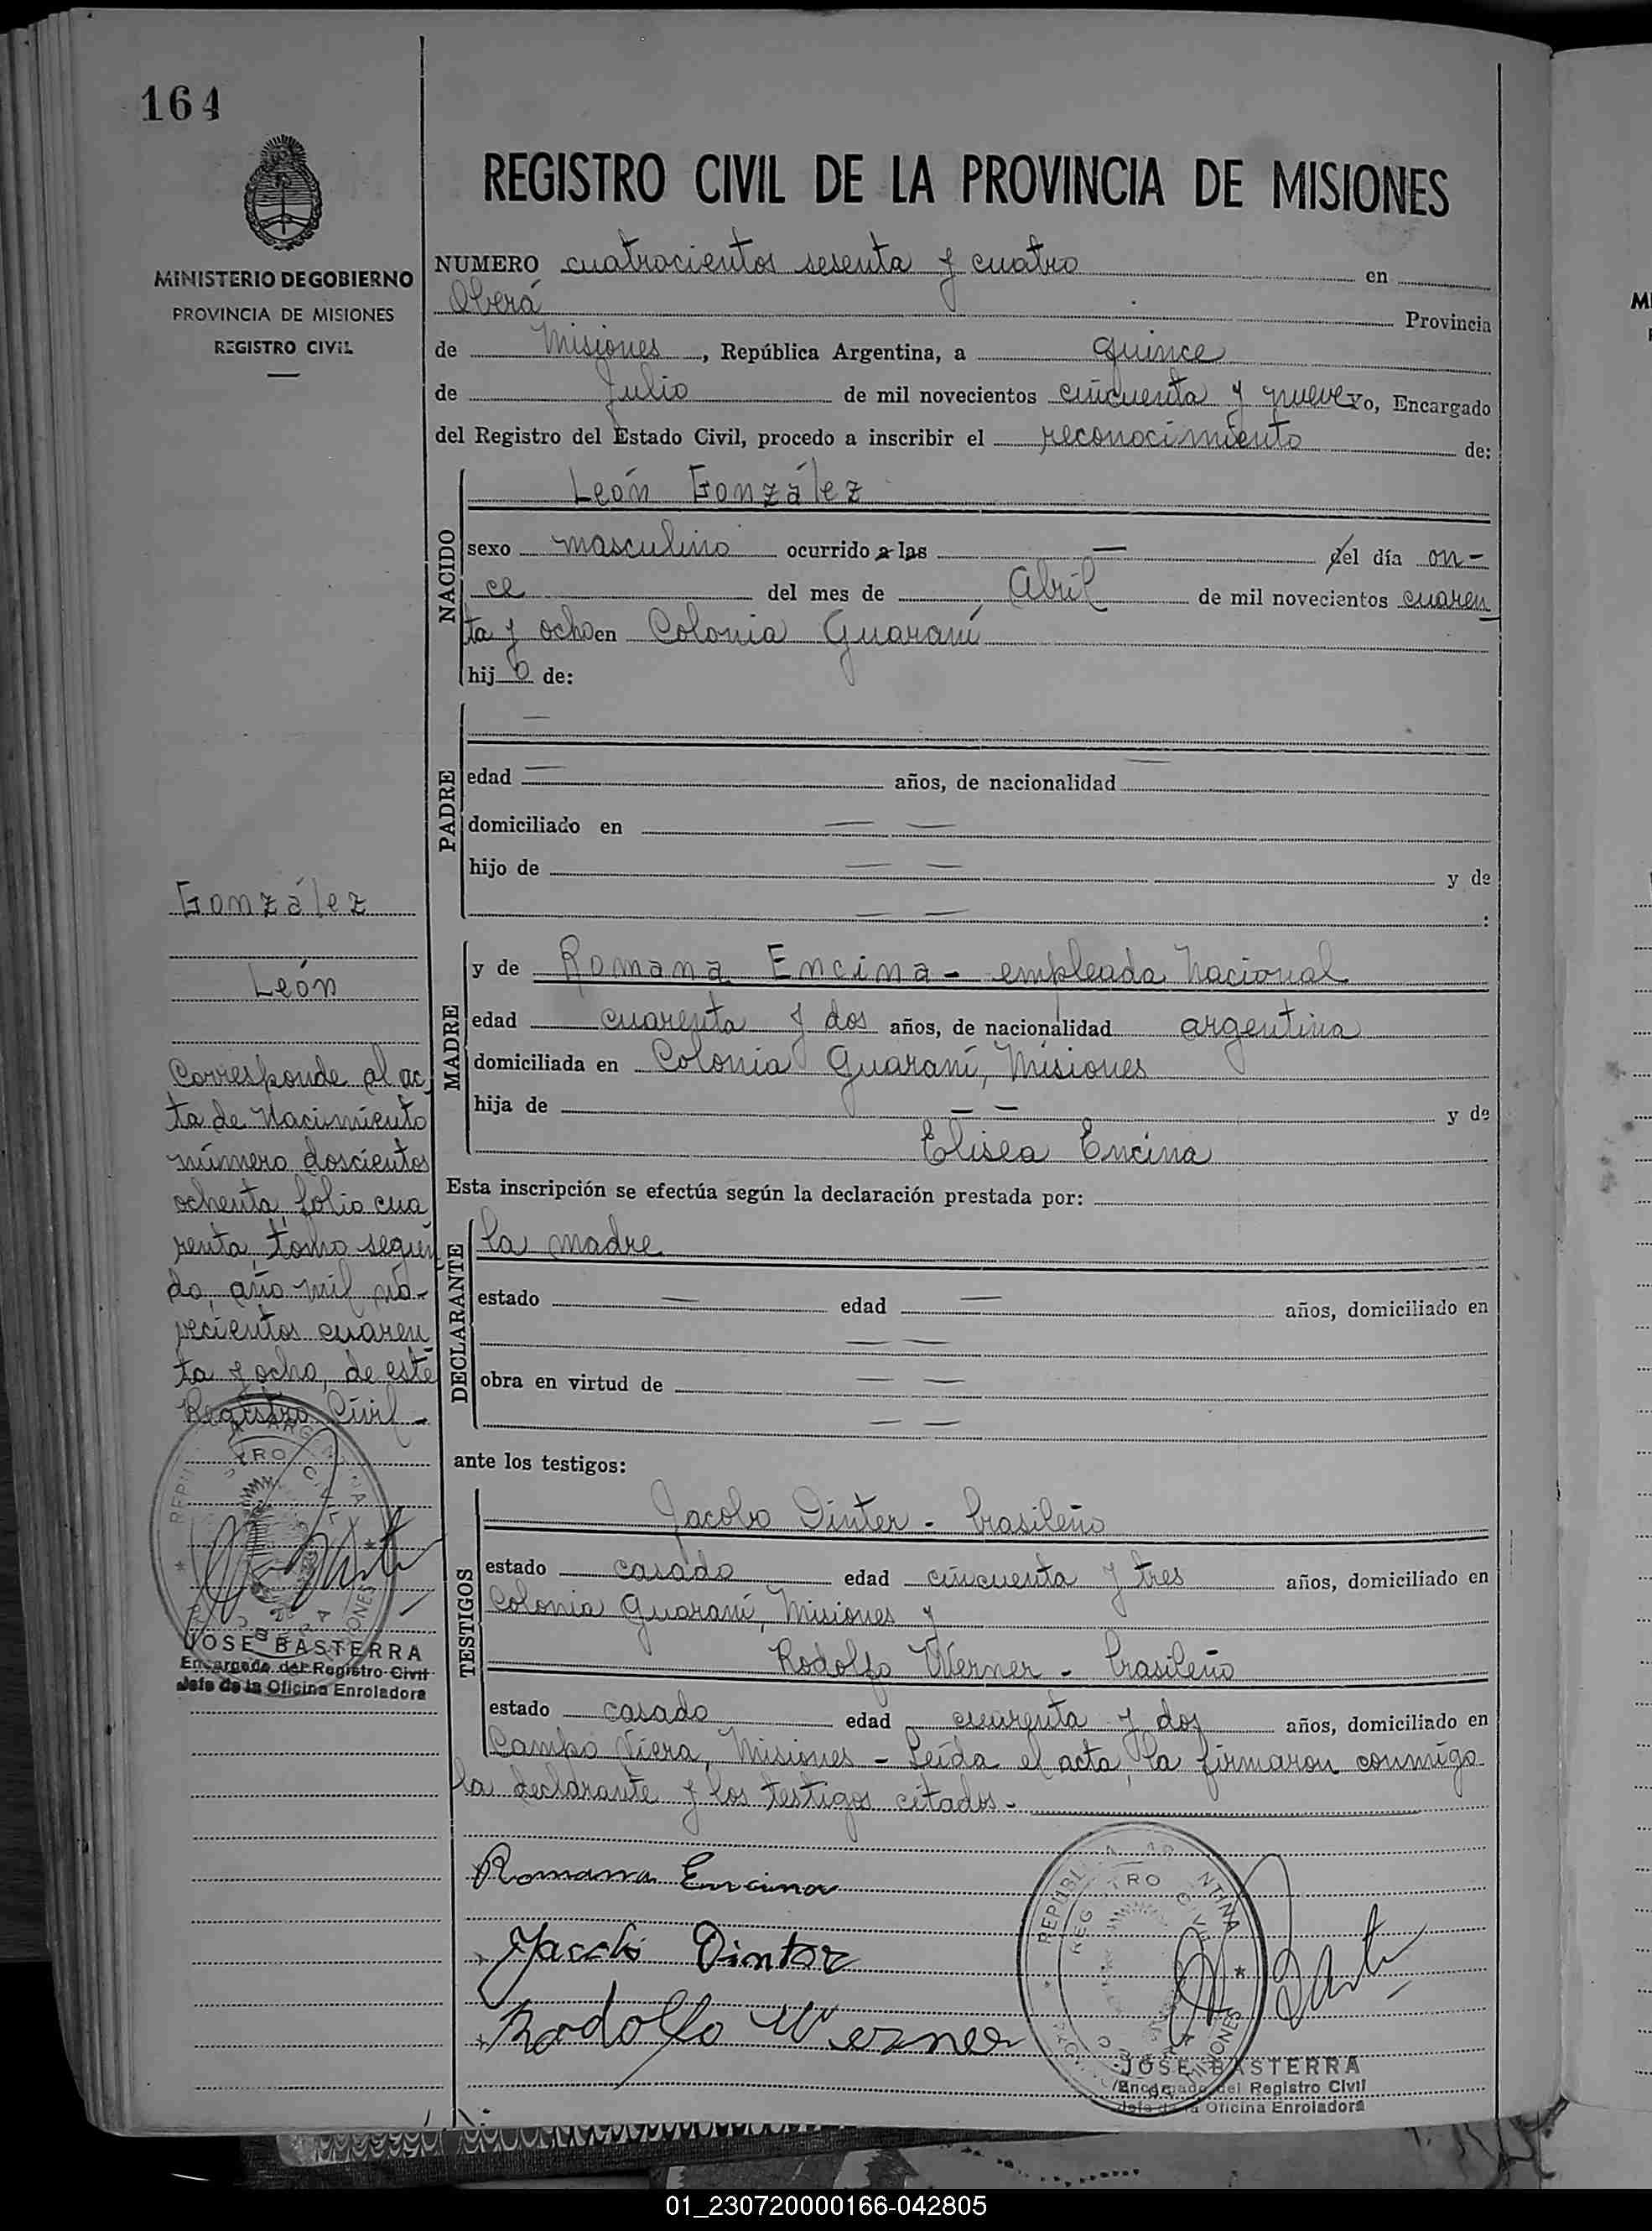 164
MINISTERIO DE GOBIERNO
PROVINCIA DE MISIONES
REGISTRO CIVIL
REGISTRO CIVIL DE LA PROVINCIA DE MISIONES
NUMERO cuatrocientos sesenta y cuatro en
Oberá Provincia
de Misiones, República Argentina, a quince
de Julio de mil novecientos cincuenta y nueve Yo, Encargado
del Registro del Estado Civil, procedo a inscribir el reconocimiento de:
NACIDO
León González
sexo masculino ocurrido a las — del día on-
ce del mes de Abril de mil novecientos cuaren
ta y ocho en Colonia Guaraní
hijo de:
PADRE
—
edad — años, de nacionalidad —
domiciliado en — —
hijo de — — y de
— — :
González
León
Corresponde al ac
ta de Nacimiento
número doscientos
ochenta, folio cua
renta, tomo segun
do, año mil no-
vecientos cuaren
ta y ocho, de este
Registro Civil -
JOSE BASTERRA
Encargado del Registro Civil
Jefe de la Oficina Enroladora
MADRE
y de Romana Encina - empleada Nacional
edad cuarenta y dos años, de nacionalidad argentina
domiciliada en Colonia Guaraní, Misiones
hija de — — y de
Elisea Encina
Esta inscripción se efectúa según la declaración prestada por:
DECLARANTE
la madre
estado — edad — años, domiciliado en
— —
obra en virtud de — —
— —
ante los testigos:
TESTIGOS
Jacobo Dinter - brasileño
estado casado edad cincuenta y tres años, domiciliado en
Colonia Guaraní, Misiones y
Rodolfo Werner - brasileño
estado casado edad cuarenta y dos años, domiciliado en
Campo Viera, Misiones - Leída el acta, la firmaron conmigo
la declarante y los testigos citados -
Romana Encina
Dinter
Rodolfo Werner
REPUBLICA ARGENTINA
REGISTRO CIVIL
MISIONES
JOSE BASTERRA
Encargado del Registro Civil
Jefe de la Oficina Enroladora
01_230720000166-042805